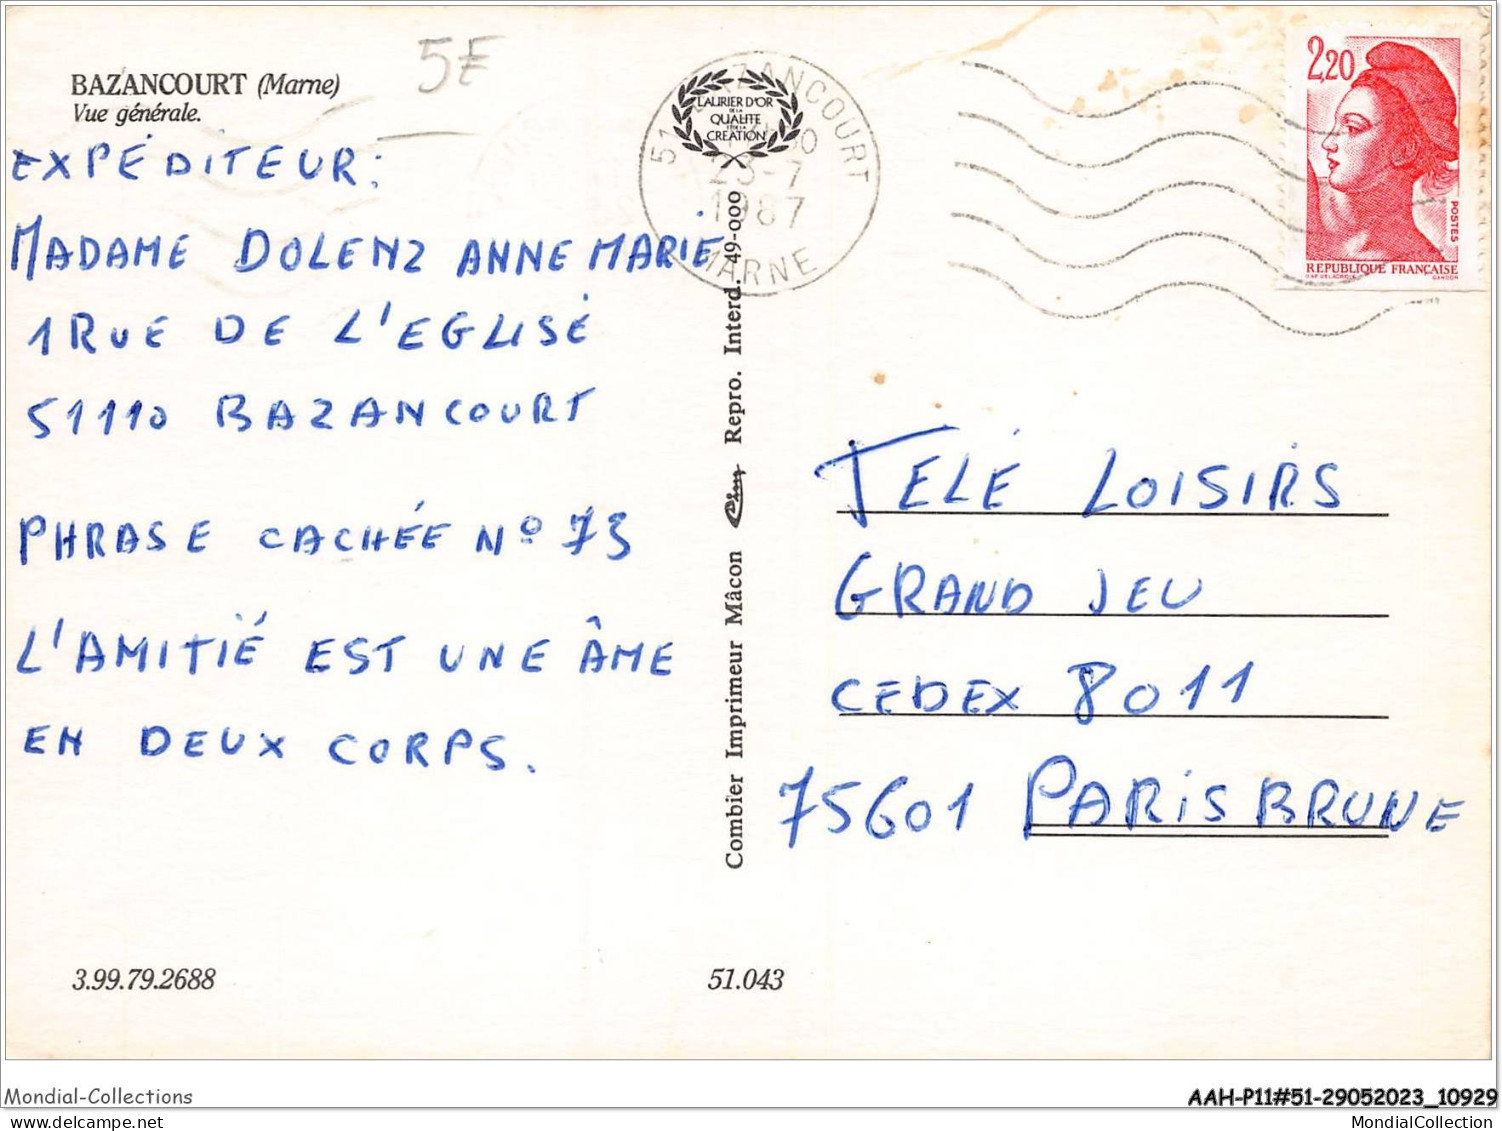 BAZANCOURT (Marne)
Vue générale.
5E
EXPÉDITEUR:
MADAME DOLENZ ANNE MARIE
1 RUE DE L'EGLISE
51110 BAZANCOURT
PHRASE CACHÉE Nº 73
L'AMITIÉ EST UNE ÂME
EN DEUX CORPS.
3.99.79.2688
51 BAZANCOURT
23-7
1987
MARNE
LAURIER D'OR
DE LA
QUALITE
ET DE LA
CREATION
Combier Imprimeur Mâcon Cim Repro. Interd. 49-000
51.043
2,20
POSTES
REPUBLIQUE FRANÇAISE
D'AP. DELACROIX GANDON
TÉLÉ LOISIRS
GRAND JEU
CEDEX 8011
75601 PARIS BRUNE
Mondial-Collections
AAH-P11#51-29052023_10929
MondialCollection